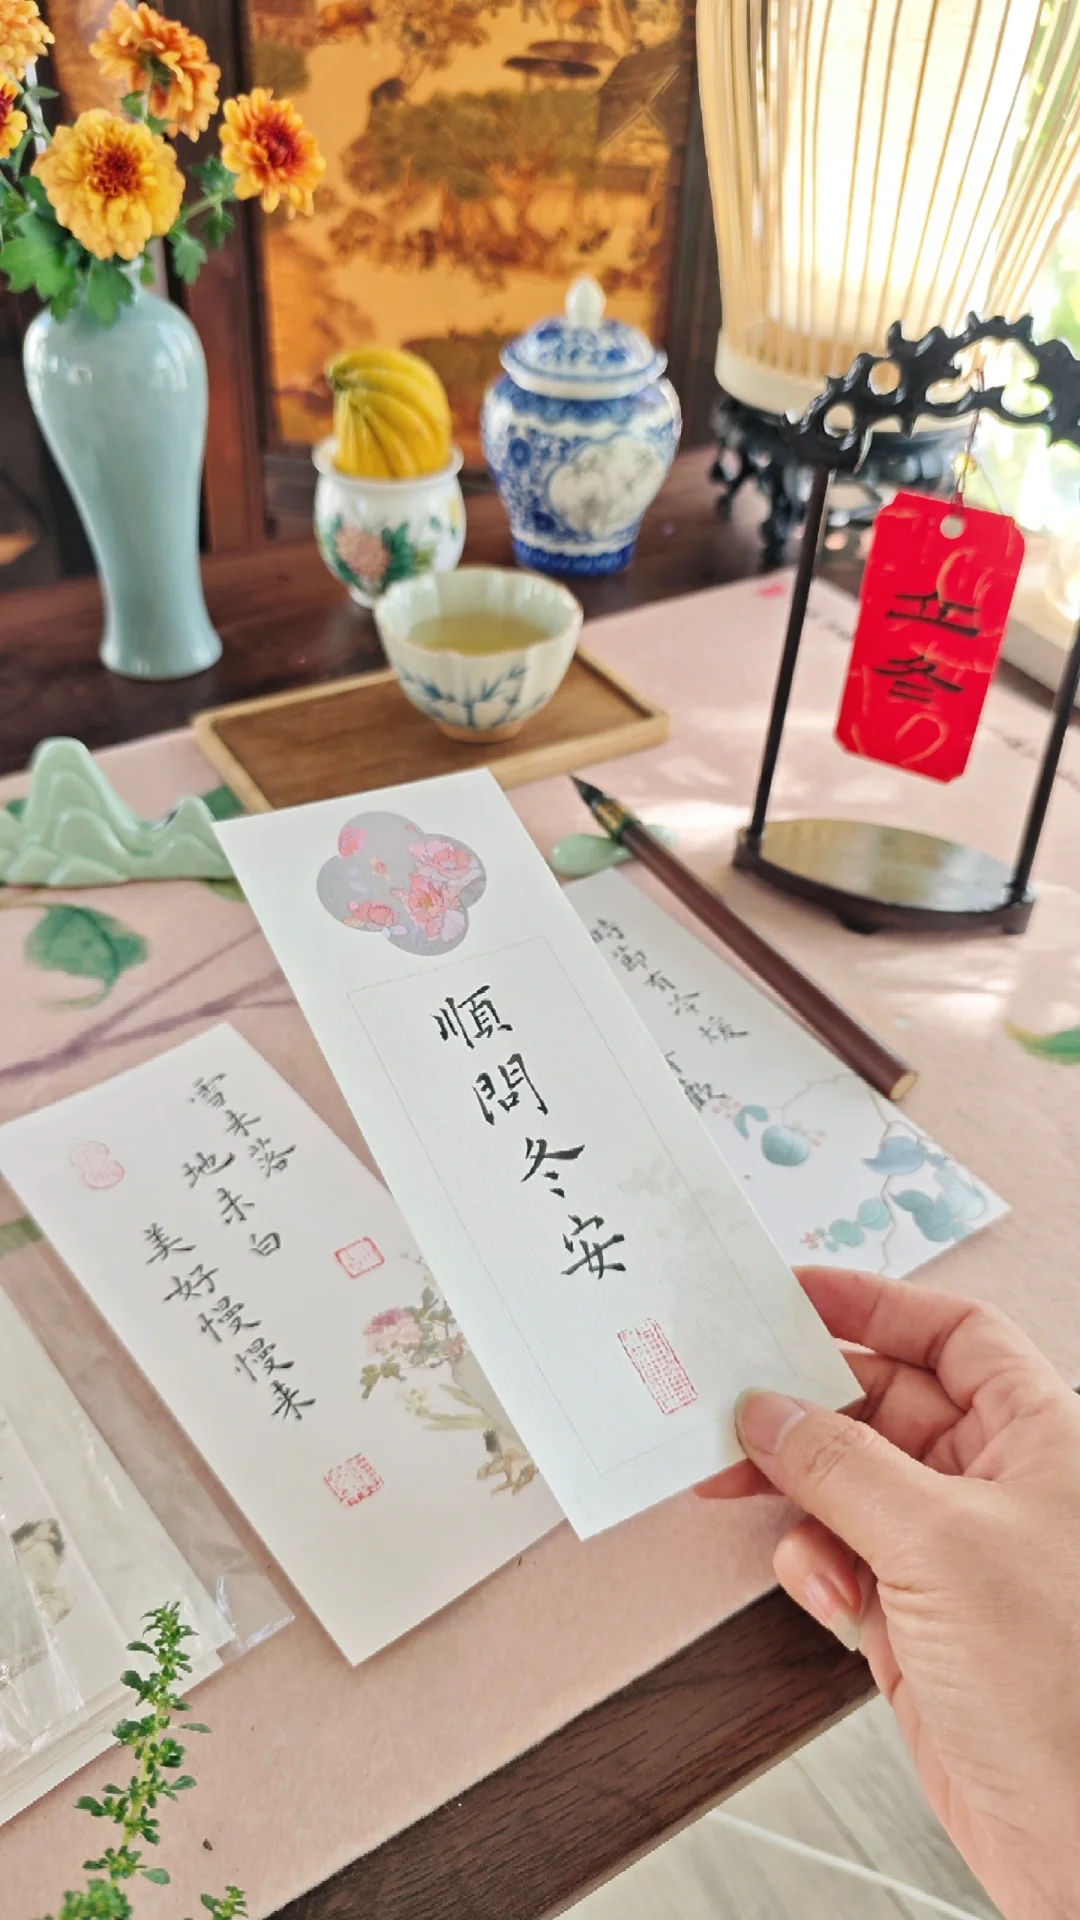 順問冬安
雪未落
地未白
美好慢慢来
時節有冷暖
立冬